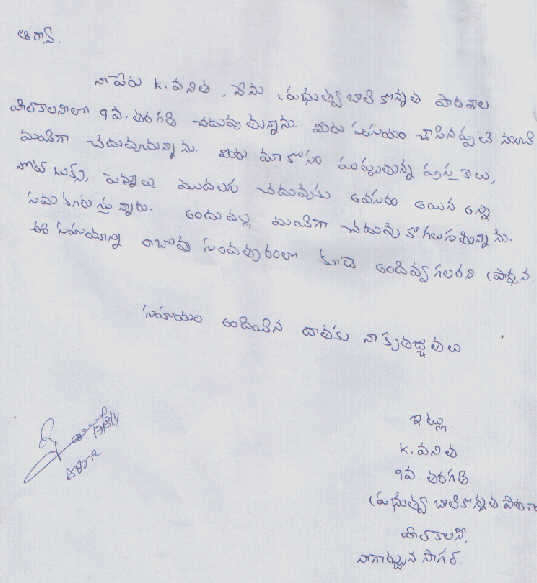 నా పేరు K. వనిత, నేను ప్రభుత్వ బాలికోన్నత పాఠశాల
హిల్ కాలనీలో 9వ. తరగతి చదువుచున్నాను. మీరు సహాయం చేసినప్పటి నుండి
మంచిగా చదువుచున్నాను. మీరు మా కోసం పంపుతున్న పుస్తకాలు,
నోట్ బుక్స్, పెన్నులు మొదలగు చదువుకు అవసరం అయిన అన్ని
సమకూరుస్తున్నారు. అందువల్ల మంచిగా చదువుకోగలుగుతున్నాను.
ఈ సహాయాన్ని రాబోవు సంవత్సరంలో కూడా అందివ్వగలరని ప్రార్థన
సహాయం అందించిన దాతకు నా కృతజ్ఞతలు
ఇట్లు
K. వనిత
9వ తరగతి
ప్రభుత్వ బాలికోన్నత పాఠశాల
హిల్ కాలనీ,
నాగార్జున సాగర్.